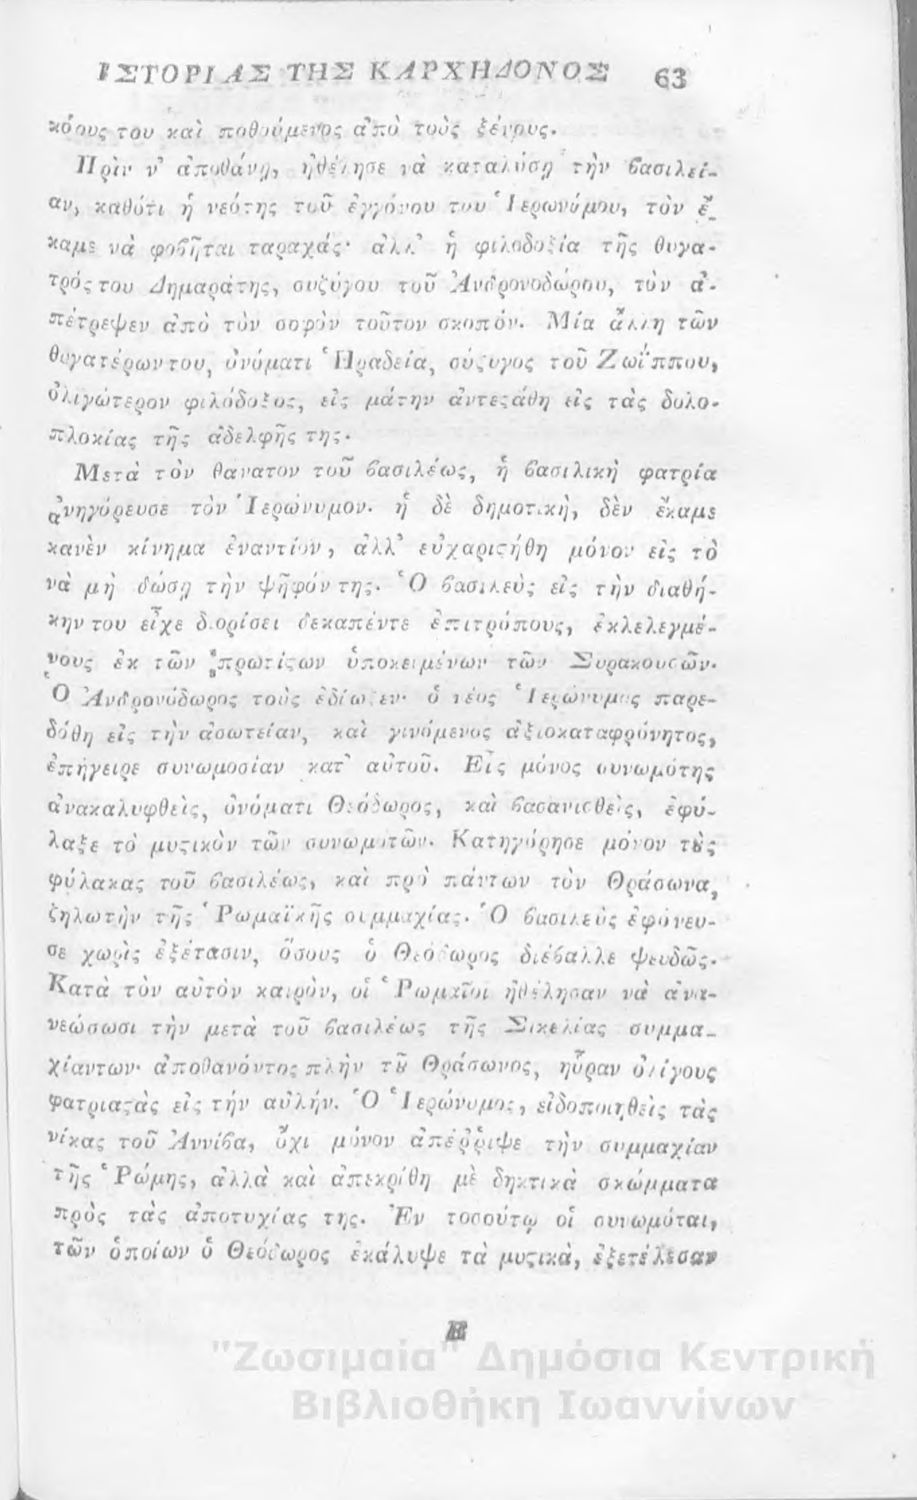 ΙΣΤΟΡΙΑΣ ΤΗΣ ΚΑΡΧΗΔΟΝΟΣ 63
κόους του καὶ ποθούμενος ἀπὸ τοὺς ξένους.
Πρὶν ν' ἀποθάνῃ, ἠθέλησε νὰ καταλύσῃ τὴν βασιλεί-
αν, καθότι ἡ νεότης τοῦ ἐγγόνου του Ἱερωνύμου, τὸν ἔ-
καμε νὰ φοβῆται ταραχάς· ἀλλ' ἡ φιλοδοξία τῆς θυγα-
τρός του Δημαράτης, συζύγου τοῦ Ἀνδρονοδώρου, τὸν ἀ-
πέτρεψεν ἀπὸ τὸν σοφὸν τοῦτον σκοπόν. Μία ἄλλη τῶν
θυγατέρων του, ὀνόματι Ἡραδεία, σύζυγος τοῦ Ζωΐππου,
ὀλιγώτερον φιλόδοξος, εἰς μάτην ἀντεϛάθη εἰς τὰς δολο-
πλοκίας τῆς ἀδελφῆς της.
Μετὰ τὸν θάνατον τοῦ βασιλέως, ἡ βασιλικὴ φατρία
ἀνηγόρευσε τὸν Ἱερώνυμον· ἡ δὲ δημοτικὴ, δὲν ἔκαμε
κανὲν κίνημα ἐναντίον, ἀλλ' εὐχαριϛήθη μόνον εἰς τὸ
νὰ μὴ δώσῃ τὴν ψῆφόν της. Ὁ βασιλεὺς εἰς τὴν διαθή-
κην του εἶχε διορίσει δεκαπέντε ἐπιτρόπους, ἐκλελεγμέ-
νους ἐκ τῶν πρωτίϛων ὑποκειμένων τῶν Συρακουσῶν.
Ὁ Ἀνδρονόδωρος τοὺς ἐδίωξεν· ὁ νέος Ἱερώνυμος παρε-
δόθη εἰς τὴν ἀσωτείαν, καὶ γινόμενος ἀξιοκαταφρόνητος,
ἐπήγειρε συνωμοσίαν κατ' αὐτοῦ. Εἷς μόνος συνωμότης
ἀνακαλυφθεὶς, ὀνόματι Θεόδωρος, καὶ βασανισθεὶς, ἐφύ-
λαξε τὸ μυϛικὸν τῶν συνωμοτῶν. Κατηγόρησε μόνον τȣ̀ς
φύλακας τοῦ βασιλέως, καὶ πρὸ πάντων τὸν Θράσωνα,
ζηλωτὴν τῆς Ῥωμαϊκῆς συμμαχίας. Ὁ βασιλεὺς ἐφόνευ-
σε χωρὶς ἐξέτασιν, ὅσους ὁ Θεόδωρος διέβαλλε ψευδῶς.
Κατὰ τὸν αὐτὸν καιρὸν, οἱ Ῥωμαῖοι ἠθέλησαν νὰ ἀνα-
νεώσωσι τὴν μετὰ τοῦ βασιλέως τῆς Σικελίας συμμα-
χίαν των· ἀποθανόντος πλὴν τȣ͂ Θράσωνος, ηὗραν ὀλίγους
φατριαϛὰς εἰς τὴν αὐλήν. Ὁ Ἱερώνυμος, εἰδοποιηθεὶς τὰς
νίκας τοῦ Ἀννίβα, ὄχι μόνον ἀπέῤῥιψε τὴν συμμαχίαν
τῆς Ῥώμης, ἀλλὰ καὶ ἀπεκρίθη μὲ δηκτικὰ σκώμματα
πρὸς τὰς ἀποτυχίας της. Ἐν τοσούτῳ οἱ συνωμόται,
τῶν ὁποίων ὁ Θεόδωρος ἐκάλυψε τὰ μυϛικὰ, ἐξετέλεσαν
"Ζωσιμαία" Δημόσια Κεντρική
Βιβλιοθήκη Ιωαννίνων